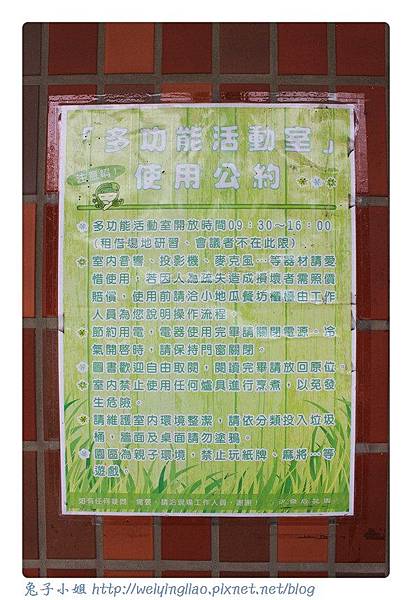 「多功能活動室」
注意喔！
使用公約
多功能活動室開放時間09：30~16：00
(租借場地研習、會議者不在此限)
室內音響、投影機、麥克風…等器材請愛
惜使用；若因人為疏失造成損壞者需照價
賠償，使用前請洽小地瓜餐坊櫃檯由工作
人員為您說明操作流程。
節約用電，電器使用完畢請關閉電源。冷
氣開啓時，請保持門窗關閉。
圖書歡迎自由取閱，閱讀完畢請放回原位。
室內禁止使用任何爐具進行烹煮，以免發
生危險。
請維護室內環境整潔，請依分類投入垃圾
桶，牆面及桌面請勿塗鴉。
園區為親子環境，禁止玩紙牌、麻將…等
遊戲。
如有任何疑問、需要，請洽現場工作人員，謝謝！
兔子小姐 http://welyingliao.pixnet.net/blog